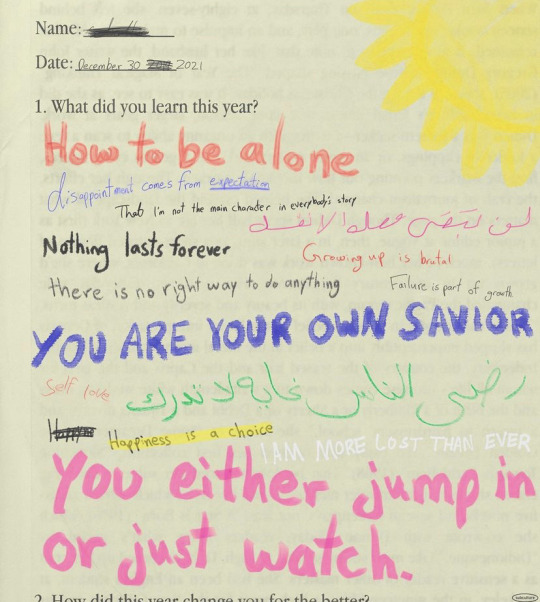 Name:
Date: December 30 2021
1. What did you learn this year?
How to be alone
disappointment comes from expectation
That I'm not the main character in everybody's story
لن معك الا نفسك
Nothing lasts forever
Growing up is brutal
there is no right way to do anything
Failure is part of growth
YOU ARE YOUR OWN SAVIOR
رضى الناس غاية لا تدرك
Self love
Happiness is a choice
I AM MORE LOST THAN EVER
You either jump in
or just watch.
2. How did this year change you for the better?